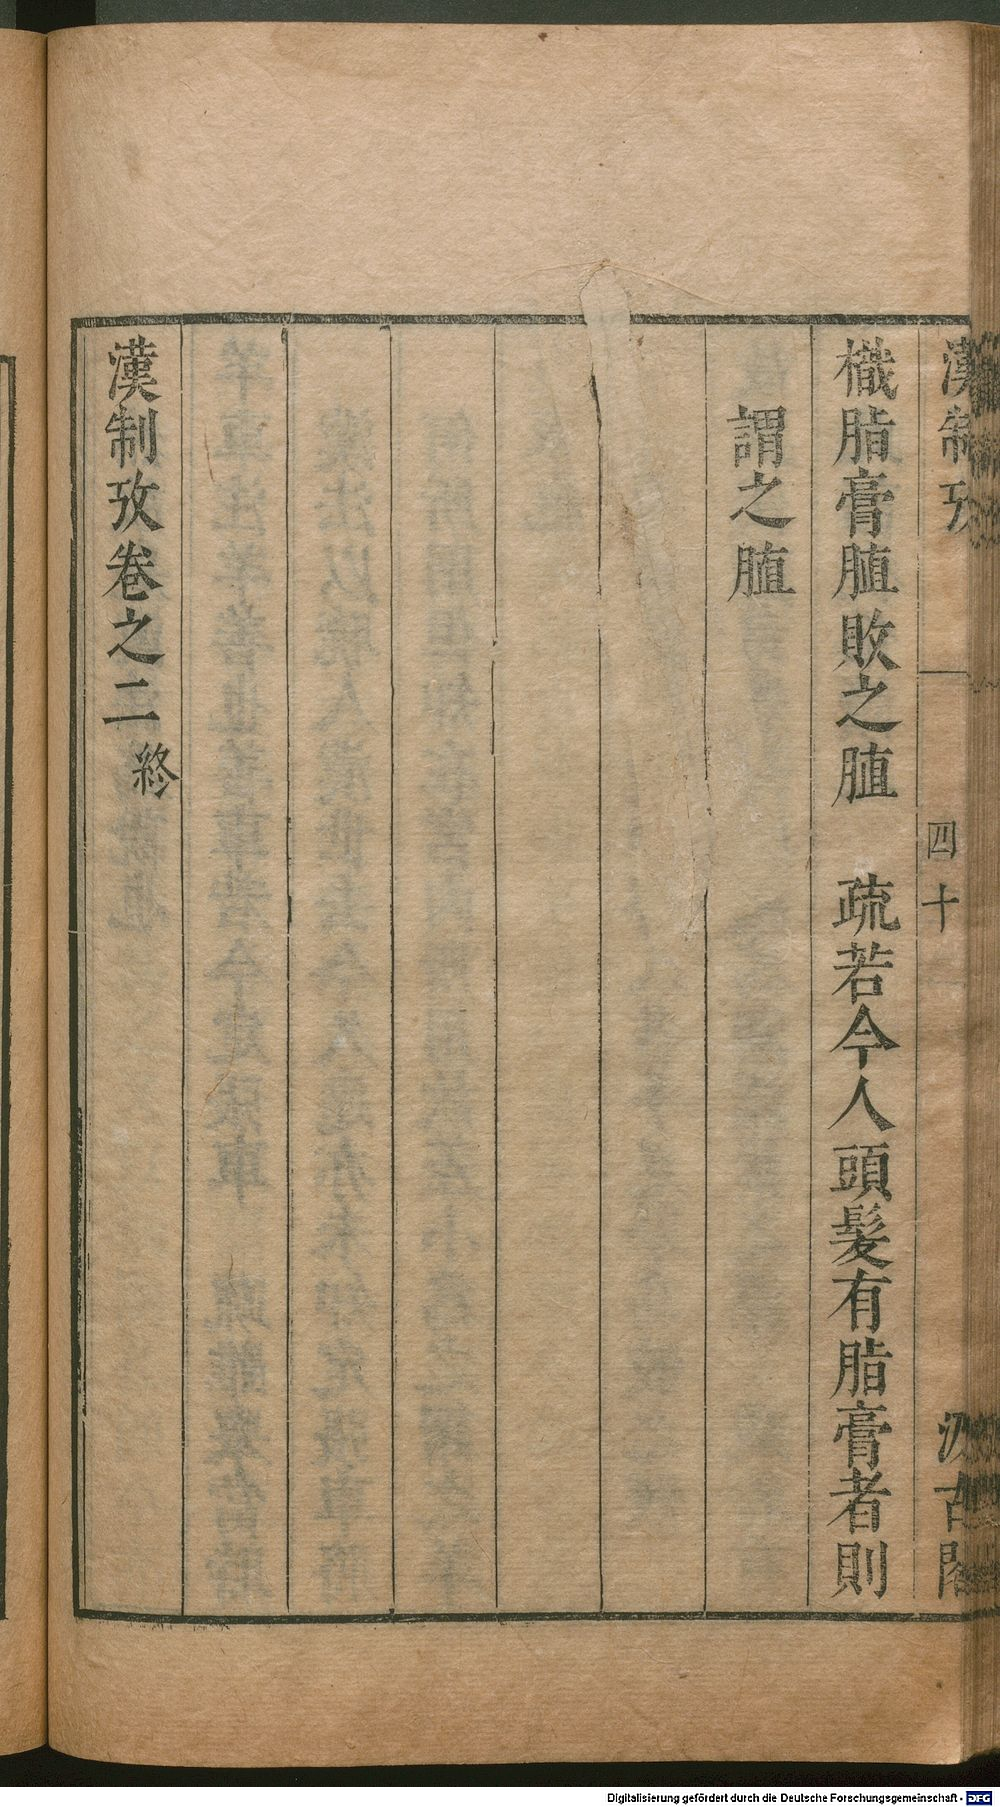 漢制攷
四十
汲古閣
樴脂膏䐈敗之䐈 疏若今人頭髮有脂膏者則
謂之䐈
漢制攷卷之二終
Digitalisierung gefördert durch die Deutsche Forschungsgemeinschaft - DFG